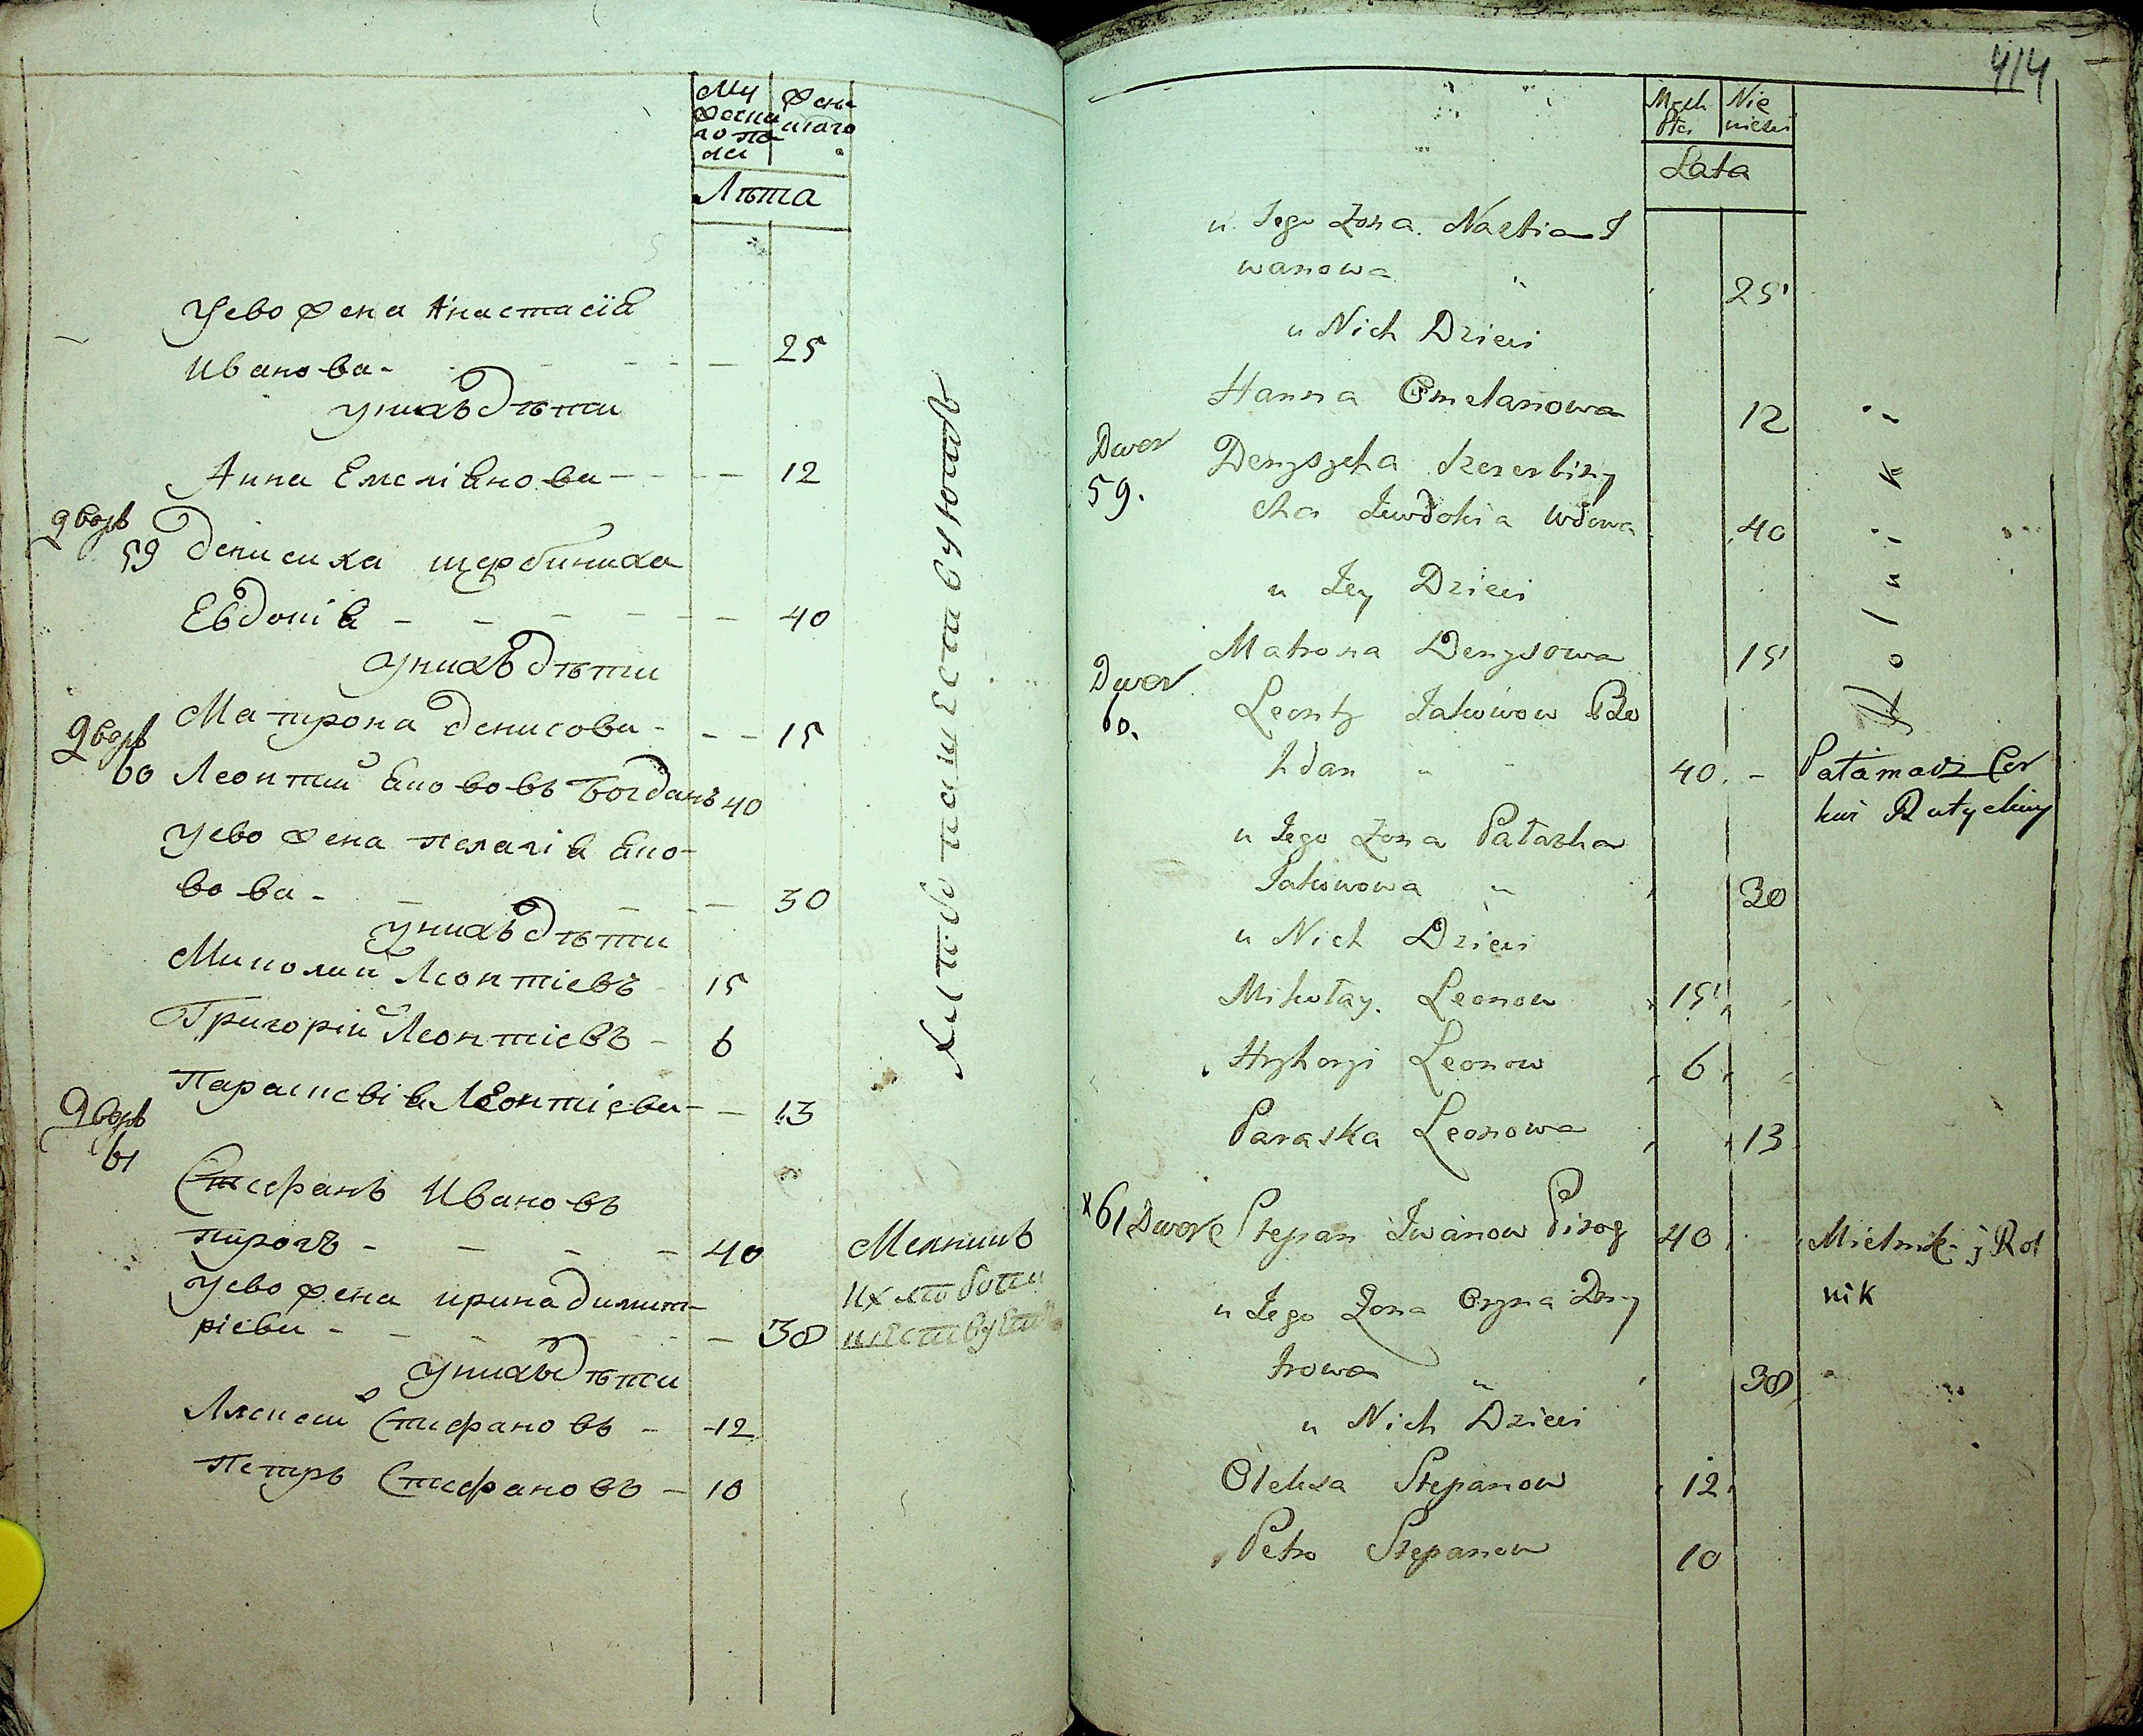 Му
жеска
го по
ла
женскаго
Лѣта
Уево жена Анастасія
Иванова - 25
унихъ дѣти
Анна Емеліянова - 12
дворъ
59 Дениси́ха щербиниха
Евдокія - 40
унихъ дѣти
Матрона Денисова - 15
дворъ
60 Леонтий Яковъ Богданъ 40
Уево жена пелагія Яко-
вова - 30
унихъ дѣти
Миколай Леонтіевъ 15
Григорій Леонтіевъ - 6
Параскевія Леонтіева - 13
дворъ
61
Стефанъ Ивановъ
пирогъ - 40 Мелникъ
Уево жена ирина димит-
ріева - 38
унихъ дѣти
Алексей Стефановъ - 12
Петръ Стефановъ - 10
414
Męzk
Płci
Nie
wiesci
Lata
u Jego Zona Nastia I
wanowa 25
u Nich Dzieci
Hanna Omelanowa 12
Dwor
59.
Denyszcha Szczerbiny
cha Jewdokia Wdowa 40
u Jey Dzieci
Matrona Denysowa 15
Dwor
60.
Leonty Jakowow Bło
hdan 40 -
u Jego Zona Pałazka
Jakowowa 30
u Nich Dzieci
Mikołay Leonow 15
Hryhoryi Leonow 6
Paraska Leonowa 13
x 61 Dwor Stepan Iwanow Pirog 40 Mielnik j Rol
nik
u Jego Zona Oryna Dmy
trowa 38
u Nich Dzieci
Olexa Stepanow 12
Petro Stepanow 10
Rolniki